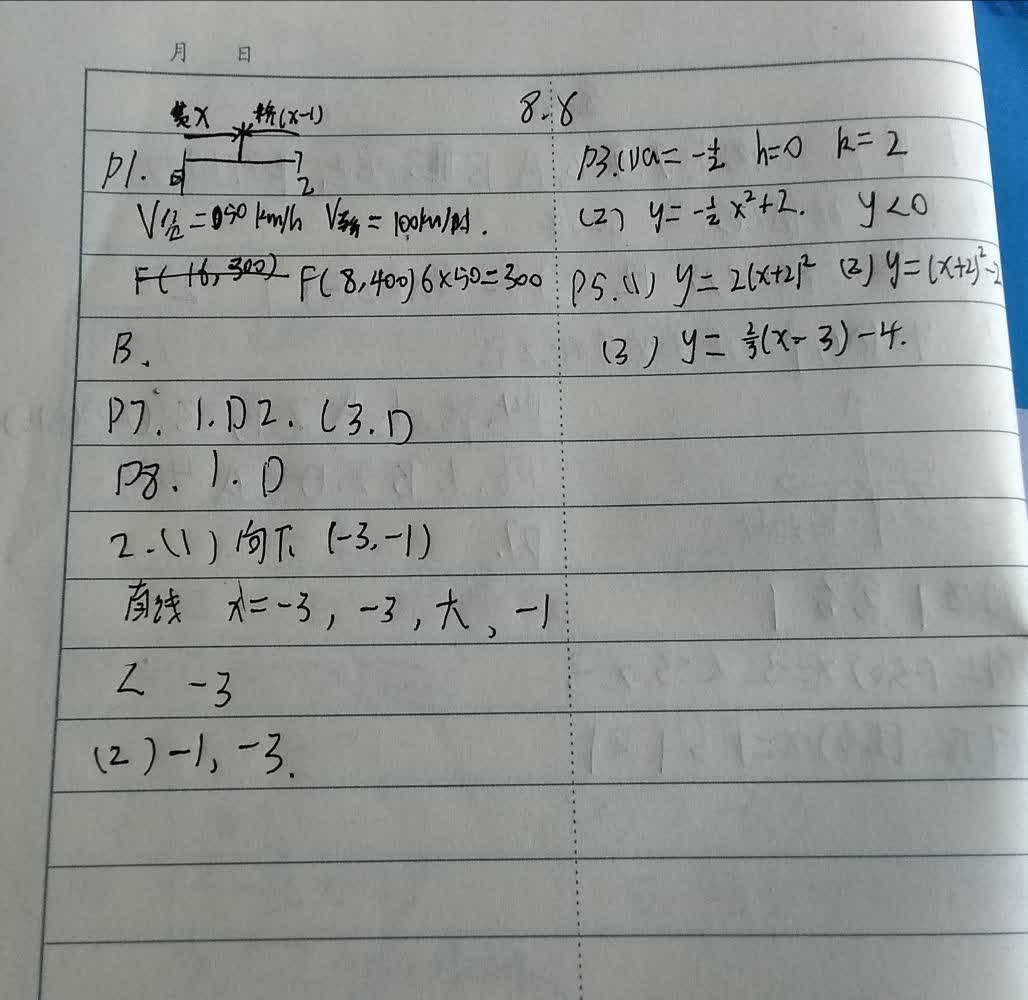 月 日
8.8
x (x-1)
P1. 2
V =50km/h V = 100km/时.
F(16,300) F(8,400) 6×50=300
B.
P7. 1.D 2. C 3. D
P8. 1. D
2.(1) 向下 (-3,-1)
直线 x=-3, -3, 大, -1
< -3
(2) -1, -3.
P3.(1) a= -1/2 h=0 k= 2
(2) y= -1/2 x²+2. y<0
P5.(1) y= 2(x+2)² (2) y=(x+2)²-2
(3) y= 2/3(x-3)-4.